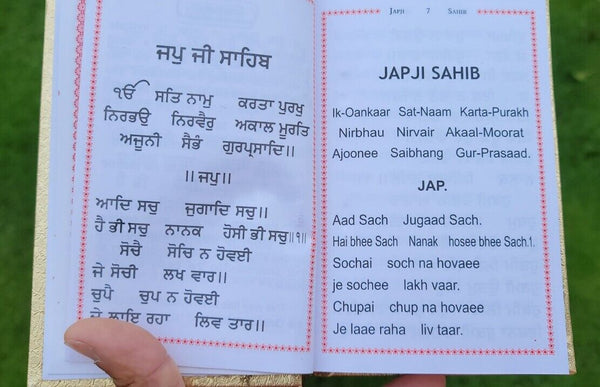 ਜਪੁ ਜੀ ਸਾਹਿਬ
ੴ ਸਤਿ ਨਾਮੁ ਕਰਤਾ ਪੁਰਖੁ
ਨਿਰਭਉ ਨਿਰਵੈਰੁ ਅਕਾਲ ਮੂਰਤਿ
ਅਜੂਨੀ ਸੈਭੰ ਗੁਰਪ੍ਰਸਾਦਿ॥
॥ਜਪੁ॥
ਆਦਿ ਸਚੁ ਜੁਗਾਦਿ ਸਚੁ॥
ਹੈ ਭੀ ਸਚੁ ਨਾਨਕ ਹੋਸੀ ਭੀ ਸਚੁ॥੧॥
ਸੋਚੈ ਸੋਚਿ ਨ ਹੋਵਈ
ਜੇ ਸੋਚੀ ਲਖ ਵਾਰ॥
ਚੁਪੈ ਚੁਪ ਨ ਹੋਵਈ
ਜੇ ਲਾਇ ਰਹਾ ਲਿਵ ਤਾਰ॥
Japji 7 Sahib
JAPJI SAHIB
Ik-Oankaar Sat-Naam Karta-Purakh
Nirbhau Nirvair Akaal-Moorat
Ajoonee Saibhang Gur-Prasaad.
JAP.
Aad Sach Jugaad Sach.
Hai bhee Sach Nanak hosee bhee Sach.1.
Sochai soch na hovaee
je sochee lakh vaar.
Chupai chup na hovaee
Je laae raha liv taar.